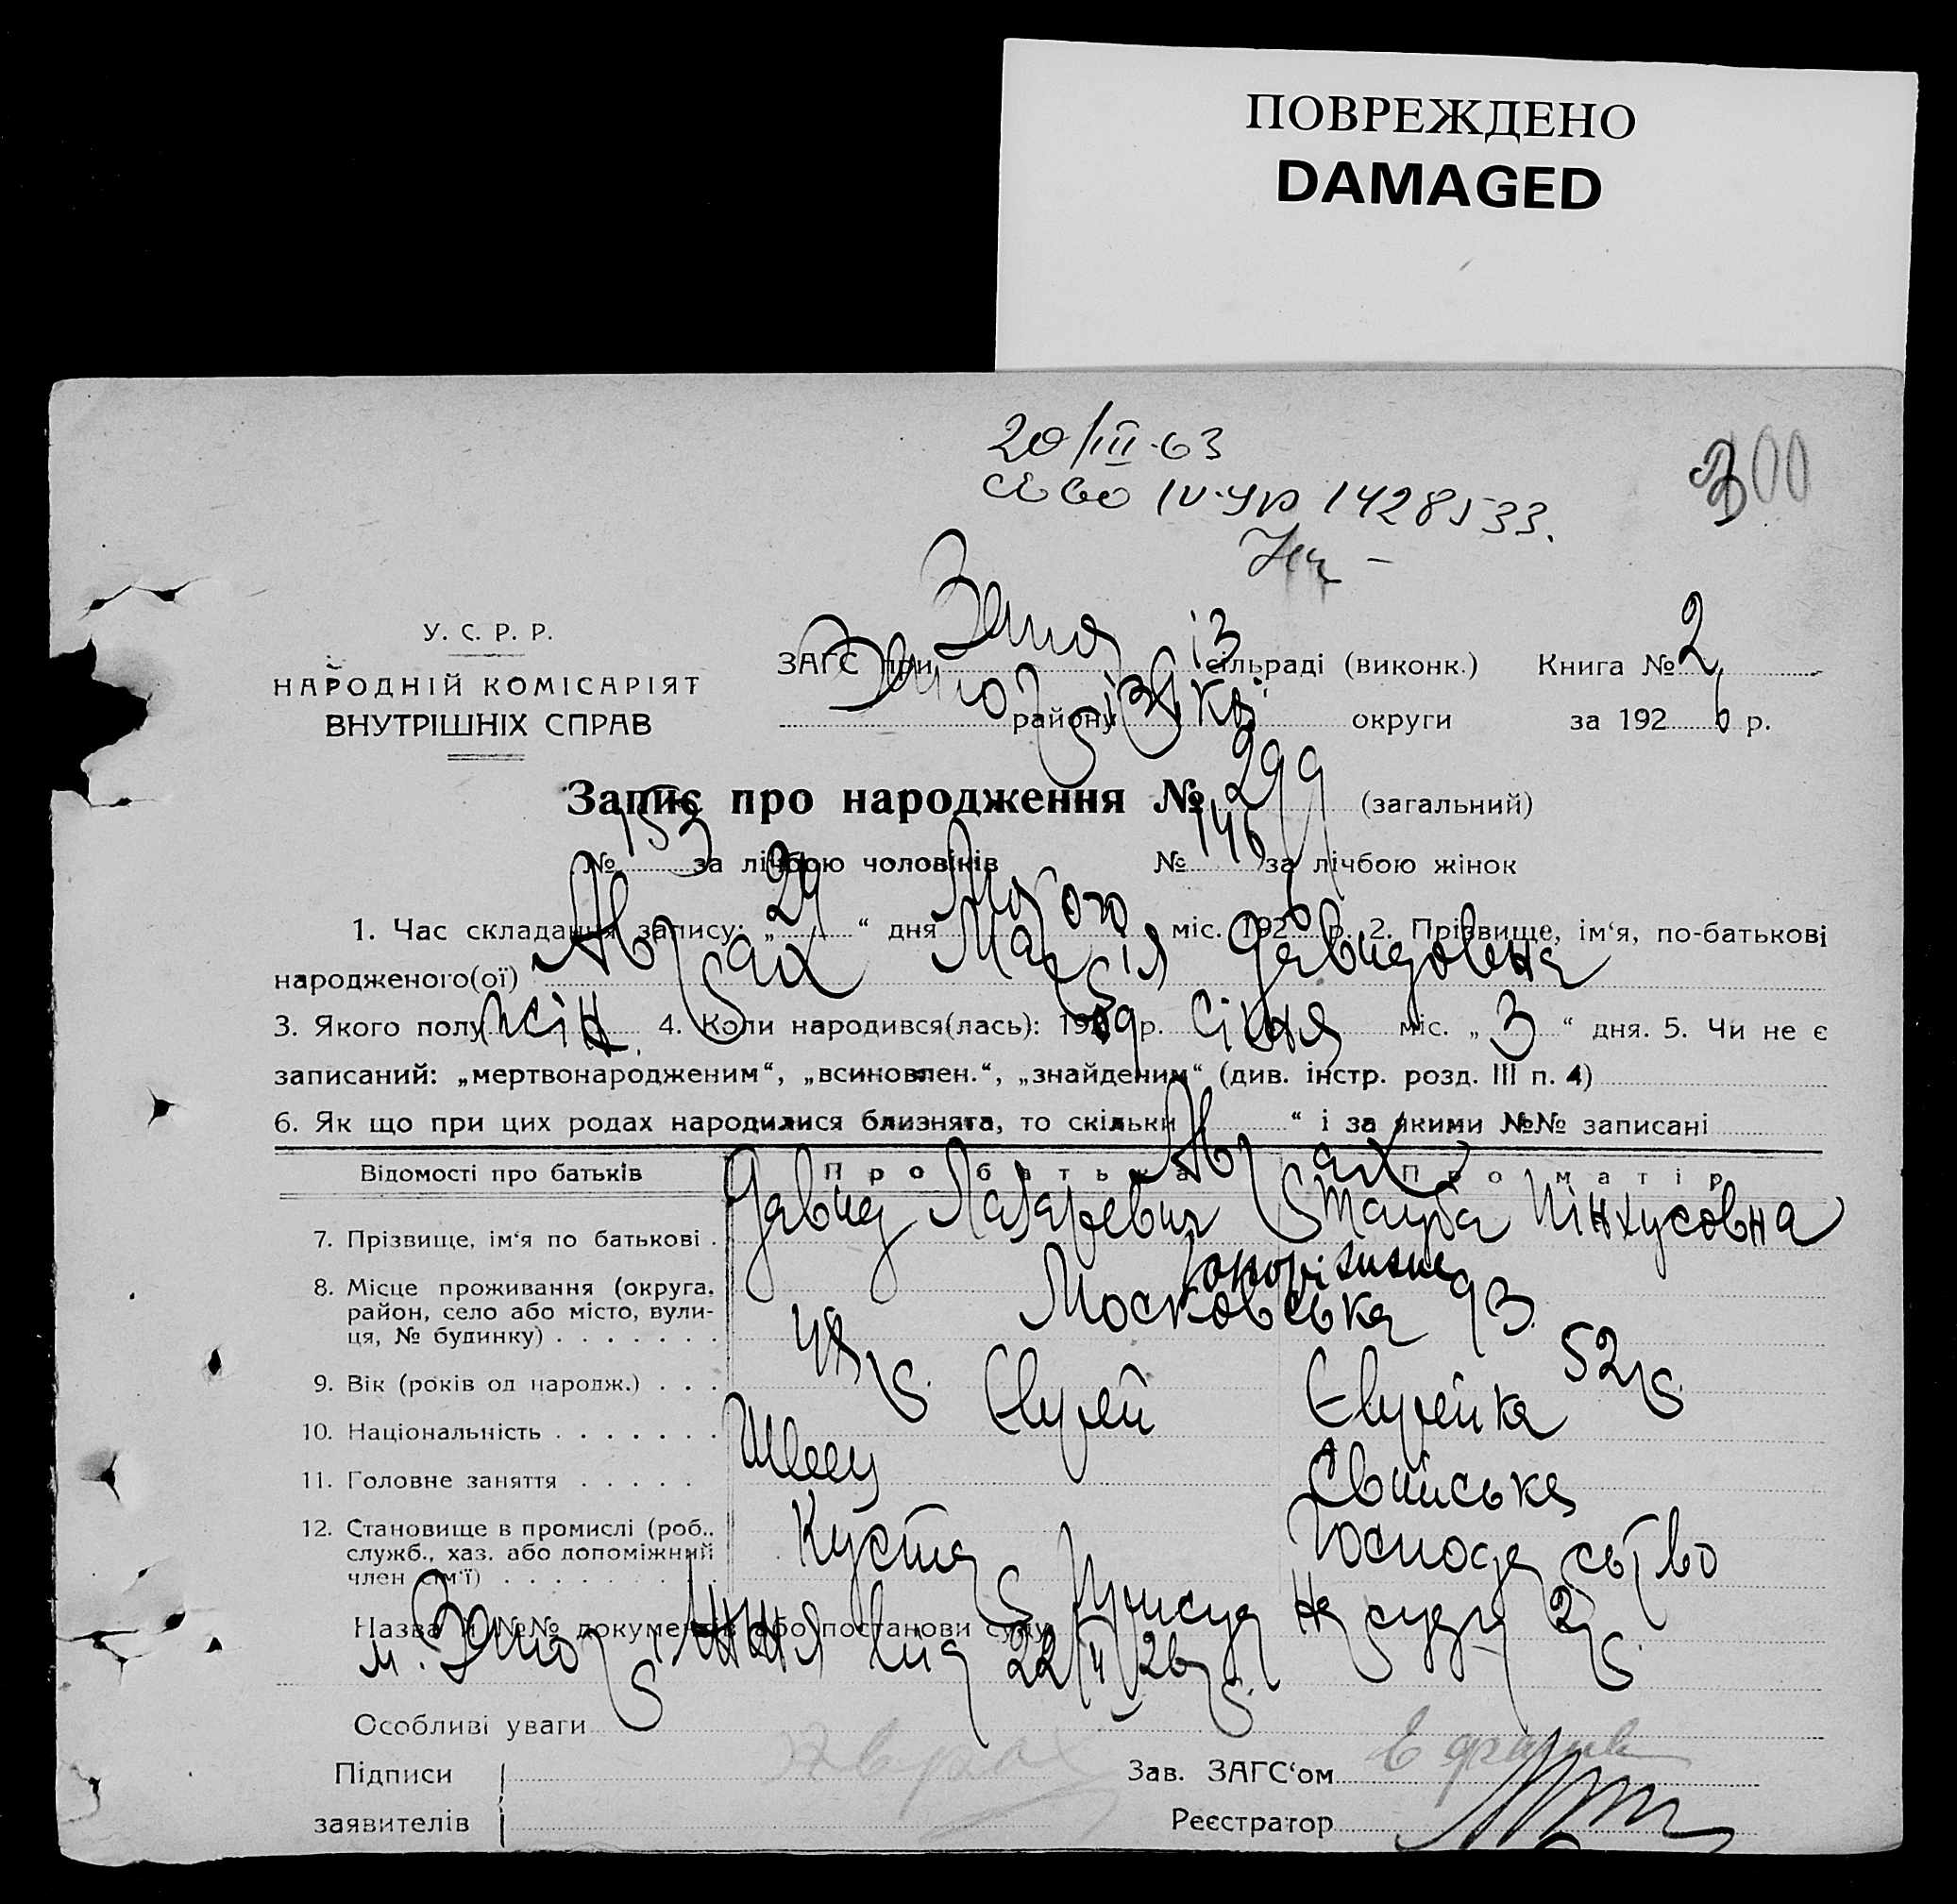 ПОВРЕЖДЕНО
DAMAGED
20/III-63
IV-УР 1428533.
300
У. С. Р. Р.
НАРОДНІЙ КОМІСАРІЯТ
ВНУТРІШНІХ СПРАВ
ЗАГС при Запоріз сільраді (виконк.) Книга № 2
Запорізької району округи за 1926 р.
Запис про народження № 299 (загальний)
№ 153 за лічбою чоловіків № 146 за лічбою жінок
1. Час складання запису: „ 24 “ дня Лютого міс. 1926 р. 2. Прізвище, ім‘я, по-батькові
народженого(ої) Аврах Марія Давидовна
3. Якого полу жін. 4. Коли народився(лась): 1909 р. Січня міс. „ 3 “ дня. 5. Чи не є
записаний: „мертвонародженим“, „всиновлен.“, „знайденим“ (див. інстр. розд. III п. 4)
6. Як що при цих родах народилися близнята, то скільки “ і за якими №№ записані
Відомості про батьків Про батька Про матір
Аврах
7. Прізвище, ім‘я по батькові . Давид Лазаревич Тауба Пінхусовна
8. Місце проживання (округа, район, село або місто, вулиця, № будинку) Запоріжжя
Московська 93
9. Вік (років од народж.) . . . 48 р. 52 р.
10. Національність . . . . . . . Єврей Єврейка
11. Головне заняття . . . . . Швець Свійське
12. Становище в промислі (роб., служб., хаз. або допоміжний член сім‘ї) Кустар Господарство
Назва й №№ документів або постанови суду Присуд Нарсуду 2 р.
м. Запоріжжя від 22/II 26 р.
Особливі уваги
Підписи
заявителів
Аврах
Зав. ЗАГС‘ом
Реєстратор